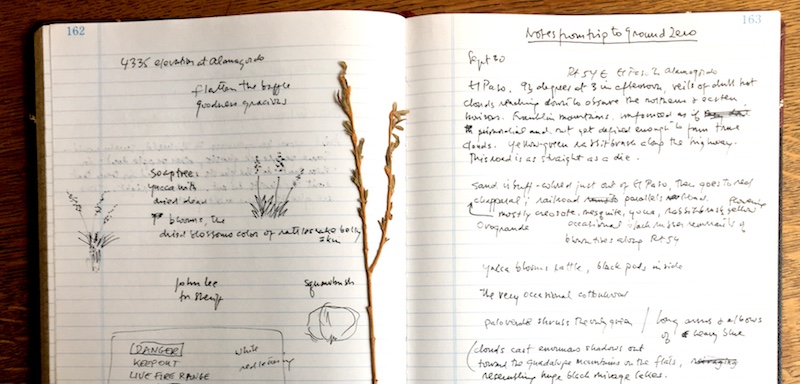 162
4335 elevation at Alamogordo
flatten the baffle
goodness gracious
soaptree
yucca with
dried dead
blooms, the
dried blossoms color of rattlesnake belly
skin
John Lee
for Sheriff
squawbush
DANGER
KEEP OUT
LIVE FIRE RANGE
white
red lettering
163
Notes from trip to Ground Zero
Sept 30
Rt 54 E El Paso to Alamogordo
El Paso, 93 degrees at 3 in afternoon, veils of dull hot
clouds reaching down to obscure the northern & eastern
horizon. Franklin mountains. unformed as if
primordial and not yet defined enough to form true
clouds. Yellow green rabbitbrush along the highway.
This road is as straight as a die.
Sand is buff-colored just out of El Paso, then goes to red
chapparal; railroad parallels road. flowering
mostly creosote, mesquite, yucca, rabbitbrush yellow
Orogrande occasional black rubber remnants of
blown tires along Rt 54
yucca blooms rattle, black pods inside
the very occasional cottonwood
paloverde shrubs the only green / long arms & elbows
of heavy blue
(clouds cast enormous shadows out
toward the Guadalupe mountains on the flats,
resembling huge black mirage lakes.